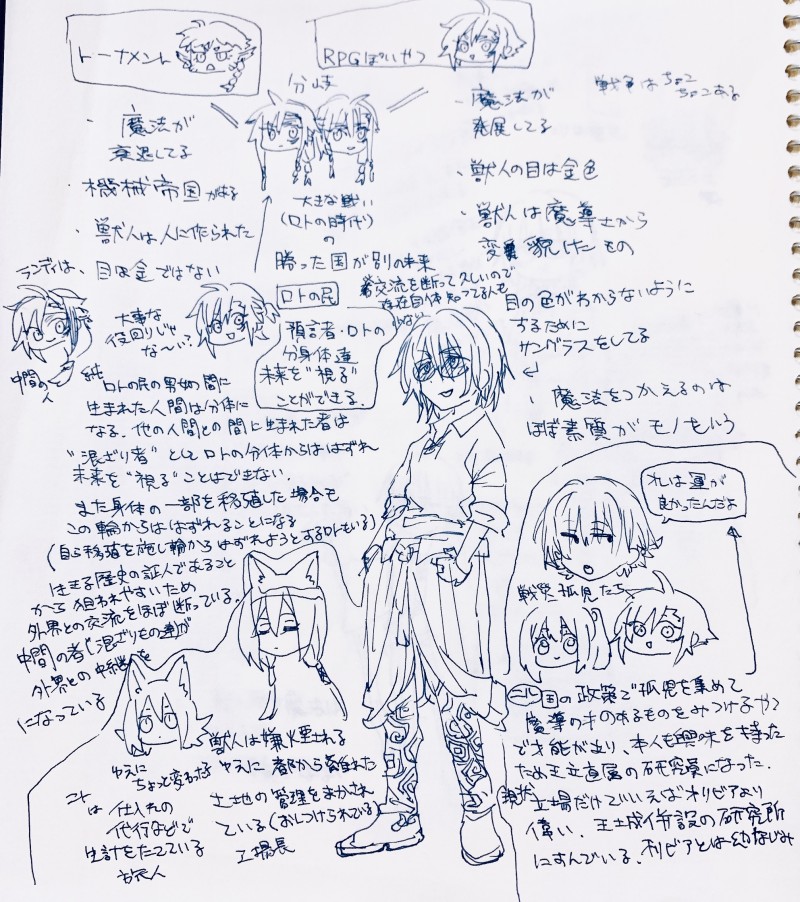 トーナメント
RPGぽいやつ
分岐
戦争はちょこ
ちょこある
・魔法が
衰退してる
・機械帝国がある
・獣人は人に作られた
目は金ではない
大きな戦い
(ロトの時代)
の
勝った国が別の未来
・魔法が
発展してる
・獣人の目は金色
・獣人は魔導士から
変貌したもの
目の色がわからないように
するために
サングラスをしてる
・魔法をつかえるのは
ほぼ素質がモノをいう
ランディは、
中間の人
大事な
役回りじゃ
な〜い?
ロトの民
交流を断って久しいので
存在自体知ってる人も
少ない
預言者・ロトの
分身体達
未来を"視る"
ことができる.
純ロトの民の男女の間に
生まれた人間は分体に
なる. 他の人間との間に生まれた者は
"混ざり者"としてロトの分体からははずれ
未来を"視る"ことはできない.
また身体の一部を移殖した場合も
この輪からははずれることになる
(自ら移殖を施し輪からはずれようとするロトもいる)
生きる歴史の証人であること
から狙われやすいため
外界との交流をほぼ断っている.
中間の者「混ざりもの達」が
外界との中継を
になっている
獣人は嫌煙される
ゆえに都から
土地の管理をまかされ
ている(おしつけられている)
工場長
ゆえに
ちょっと変わった
は仕入れの
代行などで
生計をたてている
旅人
おれは運が
良かったんだよ
戦災孤児たち
国の政策で孤児を集めて
魔導の才のあるものをみつけるやつ
で才能が辺り、本人も興味を持った
ため王立直属の研究員になった.
(現状)立場だけでいえばオリビアより
偉い. 王城併設の研究所
にすんでいる. オリビアとは幼なじみ